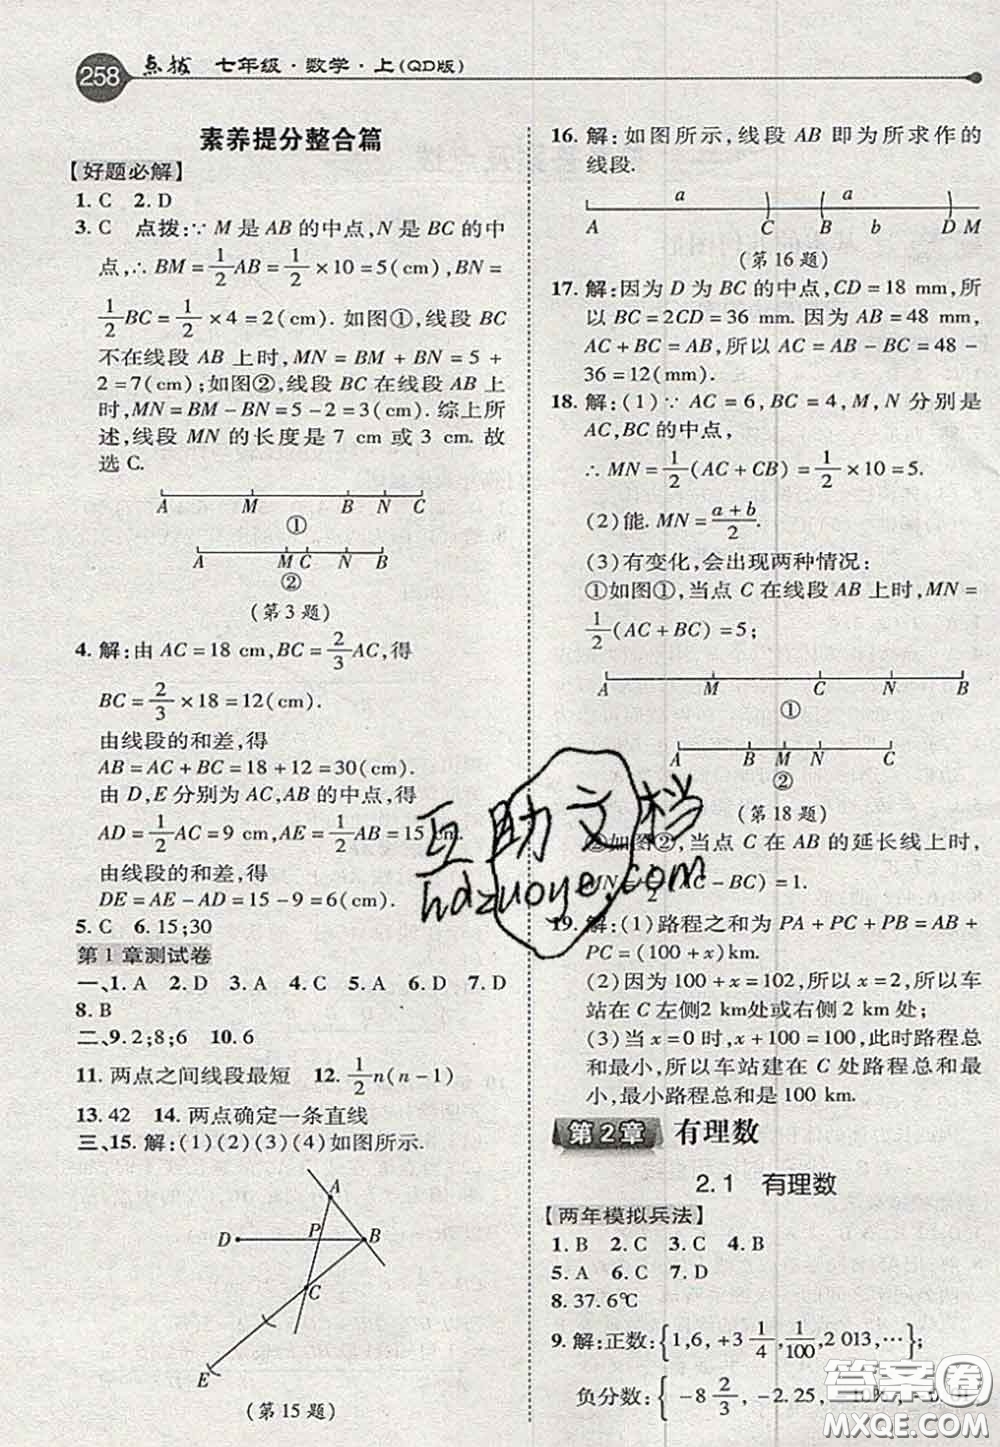 258 点拨 七年级·数学·上(QD版)
素养提分整合篇
【好题必解】
1. C 2. D
3. C 点拨:∵ M 是 AB 的中点,N 是 BC 的中
点,∴ BM = 1/2 AB = 1/2 × 10 = 5(cm), BN =
1/2 BC = 1/2 × 4 = 2(cm). 如图①,线段 BC
不在线段 AB 上时, MN = BM + BN = 5 +
2 = 7(cm);如图②,线段 BC 在线段 AB 上
时, MN = BM - BN = 5 - 2 = 3(cm). 综上所
述,线段 MN 的长度是 7 cm 或 3 cm. 故
选 C.
A M B N C
①
A M C N B
②
(第 3 题)
4. 解:由 AC = 18 cm, BC = 2/3 AC, 得
BC = 2/3 × 18 = 12(cm).
由线段的和差,得
AB = AC + BC = 18 + 12 = 30(cm).
由 D,E 分别为 AC,AB 的中点,得
AD = 1/2 AC = 9 cm, AE = 1/2 AB = 15 cm.
由线段的和差,得
DE = AE - AD = 15 - 9 = 6(cm).
5. C 6. 15;30
第 1 章测试卷
一、1. A 2. D 3. A 4. C 5. A 6. D 7. D
8. B
二、9. 2;8;6 10. 6
11. 两点之间线段最短 12. 1/2 n(n-1)
13. 42 14. 两点确定一条直线
三、15. 解:(1)(2)(3)(4)如图所示.
A
P
D B
C
E
(第 15 题)
16. 解:如图所示,线段 AB 即为所求作的
线段.
a a
A C B b D M
(第 16 题)
17. 解:因为 D 为 BC 的中点, CD = 18 mm, 所
以 BC = 2CD = 36 mm. 因为 AB = 48 mm,
AC + BC = AB, 所以 AC = AB - BC = 48 -
36 = 12(mm).
18. 解:(1)∵ AC = 6, BC = 4, M, N 分别是
AC, BC 的中点,
∴ MN = 1/2 (AC + CB) = 1/2 × 10 = 5.
(2)能. MN = (a+b)/2.
(3)有变化,会出现两种情况:
①如图①,当点 C 在线段 AB 上时, MN =
1/2 (AC + BC) = 5;
A M C N B
①
A B M N C
②
(第 18 题)
②如图②,当点 C 在 AB 的延长线上时,
MN = 1/2 (AC - BC) = 1.
19. 解:(1)路程之和为 PA + PC + PB = AB +
PC = (100 + x)km.
(2)因为 100 + x = 102, 所以 x = 2. 所以车
站在 C 左侧2 km处或右侧 2 km 处;
(3)当 x = 0 时, x + 100 = 100, 此时路程总
和最小,所以车站建在 C 处路程总和最
小,最小路程总和是 100 km.
第2章 有理数
2.1 有理数
【两年模拟兵法】
1. B 2. C 3. C 4. B
5. A 6. C 7. D
8. 37.6℃
9. 解:正数:{1,6, +3 1/4, 1/100, 2 013, …};
负分数:{-8 2/3, -2.25, -10%,
互助文档
hdzuoye.com
答案圈
MXQE.COM